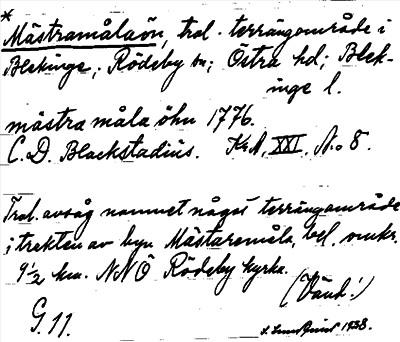 * Mästramålaön, trol. terrängområde i
Blekinge; Rödeby sn; Östra hd; Blek-
inge l.
mästra måla öhn 1776.
C. D. Blackstadius. KrA, XXI, No 8.
Trol. avsåg namnet något terrängområde
i trakten av byn Mästaremåla, bel. omkr.
9 1/2 km. NNÖ Rödeby kyrka.
(Vänd!)
G. 11. 1938.